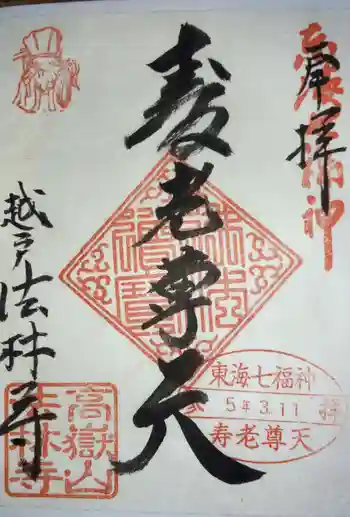 奉拝
寿老尊天
越戸法林寺
東海七福神
5年3.11 拝
寿老尊天
高嶽山
法林寺